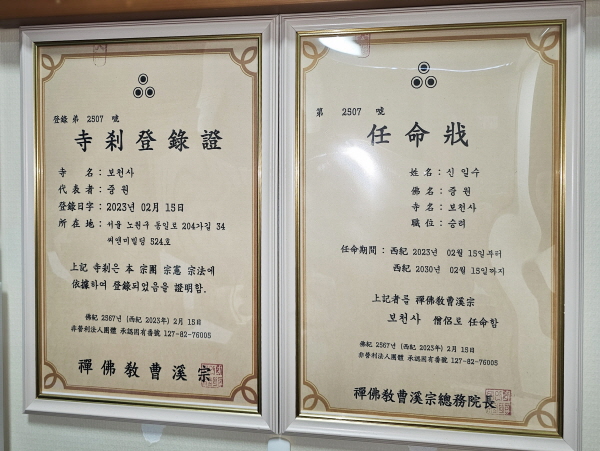 登錄 第 2507 號
寺刹登錄證
寺 名 : 보천사
代表者 : 중원
登錄日字 : 2023년 02월 15日
所在地 : 서울 노원구 동일로 204가길 34
씨앤미빌딩 524호
上記 寺刹은 本 宗團 宗憲 宗法에
依據하여 登錄되었음을 證明함.
佛紀 2567년 (西紀 2023年) 2月 15日
非營利法人團體 承認固有番號 127-82-76005
禪佛敎曹溪宗
第 2507 號
任命狀
姓名 : 신일수
佛名 : 중원
寺名 : 보천사
職位 : 승려
任命期間 : 西紀 2023년 02월 15일부터
西紀 2030년 02월 15일까지
上記者를 禪佛敎曹溪宗
보천사 僧侶로 任命함
佛紀 2567년 (西紀 2023年) 2月 15日
非營利法人團體 承認固有番號 127-82-76005
禪佛敎曹溪宗總務院長